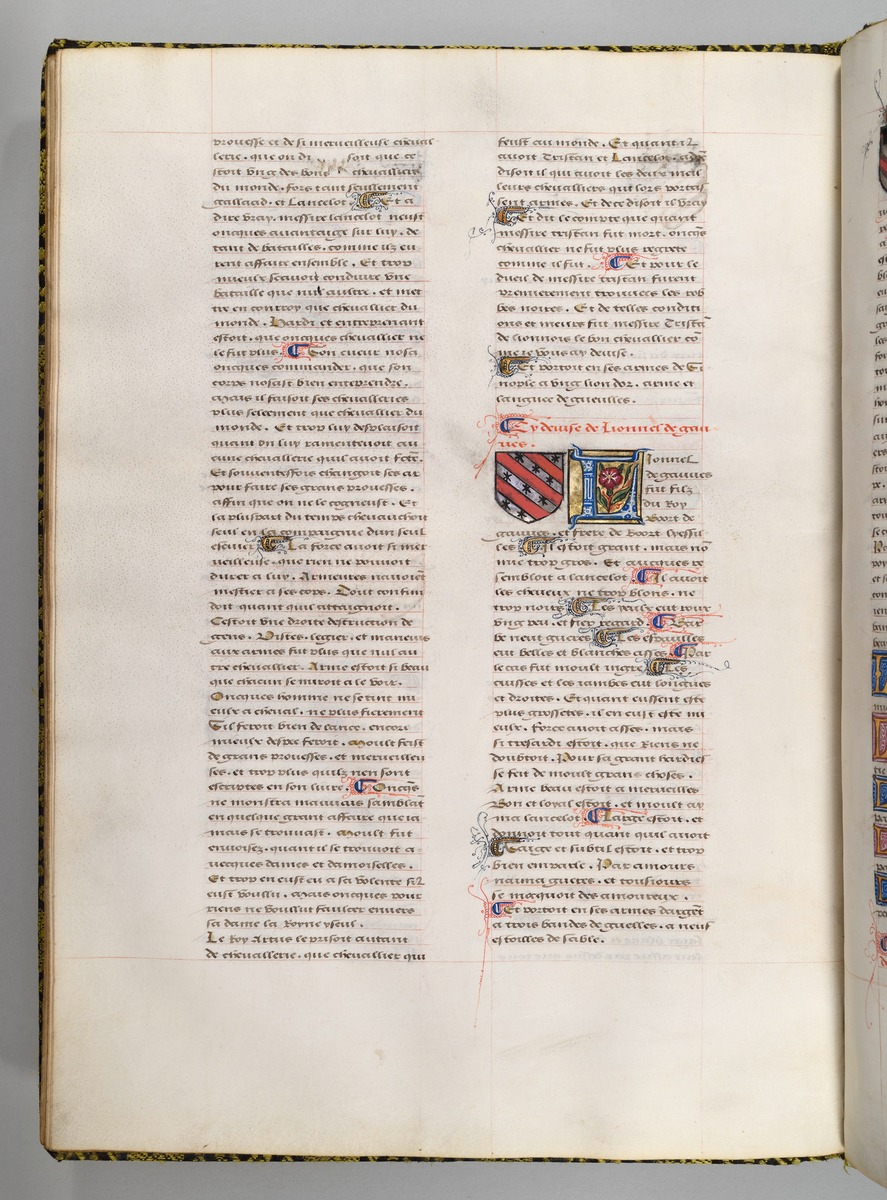 prouesse et de si merueilleuse cheual
lerie. que on di soit que ce
stoit vng des bons cheualliers
du monde. fors tant seullement
gaillaad. et Lancelot. Et a
dire vray. messire lancelot neust
oncques auantaige sur luy. de
tant de batailles. comme ilz eu
rent affaire ensemble. Et trop
mieulx scauoit conduire vne
bataille que nul aultre. et met
tre en conrroy que cheuallier du
monde. Hardi et entreprenant
estoit. que oncques cheuallier ne
le fut plus. Son cueur nosa
oncques commander. que son
corps nosast bien entreprendre.
Mais il faisoit ses cheualleries
plus celeement que cheuallier du
monde. Et trop luy desplaisoit
quant on luy ramenteuoit au
cune cheuallerie quil auoit fcte.
Et souuenteffois changoit ses ar
pour faire ses grans prouesses.
affin que on ne le cogneust. Et
la pluspart du temps cheuauchoit
seul en la compaignie dun seul
escuier. La force auoit si mer
ueilleuse. que rien ne pouuoit
durer a luy. Armeures nauoiet
mestier a ses cops. Tout confun
doit quant quil attaignoit.
Cestoit vne droite destruction de
gens. Vistes. legier. et maneuis
aux armes fut plus que nul au
tre cheuallier. Arme estoit si beau
que chacun se miroit a le voir.
Oncques homme ne se tint mi
eulx a cheual. ne plus fierement
Sil feroit bien de lance. encore
mieulx despee feroit. Moult feist
de grans prouesses. et merueilleu
ses. et trop plus quilz nen sont
escriptes en son liure. Oncqs
ne monstra mauuais samblat
en quelque grant affaire que ia
mais se trouuast. Moult fut
enuoisez. quant il se trouuoit a
uecques dames et damoiselles.
Et trop en eust eu a sa volente sil
eust voullu. Mais oncques pour
riens ne voullut faulcer enuers
sa dame la Royne yseul.
Le Roy Artus le prisoit autant
de cheuallerie. que cheuallier qui
feust au monde. Et quant il
auoit Tristan et Lancelot.
disoit il qui auoit les deux meil
leurs cheualliers qui lors portas
sent armes. Et de ce disoit il vray
Et dit le compte que quant
messire tristan fut mort. oncqs
cheuallier ne fut plus regrete
comme il fut. Et pour le
dueil de messire tristan furent
premierement trouuees les rob
bes noires. Et de telles conditi
ons et meurs fut messire Trista
de lionnois le bon cheuallier co
me ie vous ay deuise.
Et portoit en ses armes de Si
nople a vng lion dor. arme et
languee de gueulles.
Cy deuise de Lionnel de gau
nes.
Lionnel
de gaunes
fut filz
du Roy
Boort de
gaunes. et frere de Boort lyessil
les. Il estoit grant. mais no
mie trop gros. Et aucques re
sembloit a lancelot. Il auoit
les cheueux ne trop blons. ne
trop noirs. Les yeulx eut pour
vng pau. et fier regard. Bar
be neut gueres. Les espaulles
eut belles et blanches asses. Par
le cas fut moult nigre. Les
cuisses et les iambes eut longues
et droites. Et quant eussent este
plus grossetes. il en eust este mi
eulx. Force auoit asses. mais
si treshardi estoit. que Riens ne
doubtoit. Pour sa grant hardies
se fit de moult grans choses.
Arme beau estoit a merueilles
Bon et loyal estoit. et moult ay
ma lancelot. Large estoit. et
donnoit tout quant quil auoit
Saige et subtil estoit. et trop
bien emparle. Par amours
nauma gueres. et tousiours
se mocquoit des amoureux.
Et portoit en ses armes dargēt
a trois bandes de guelles. a neuf
estoilles de sable.